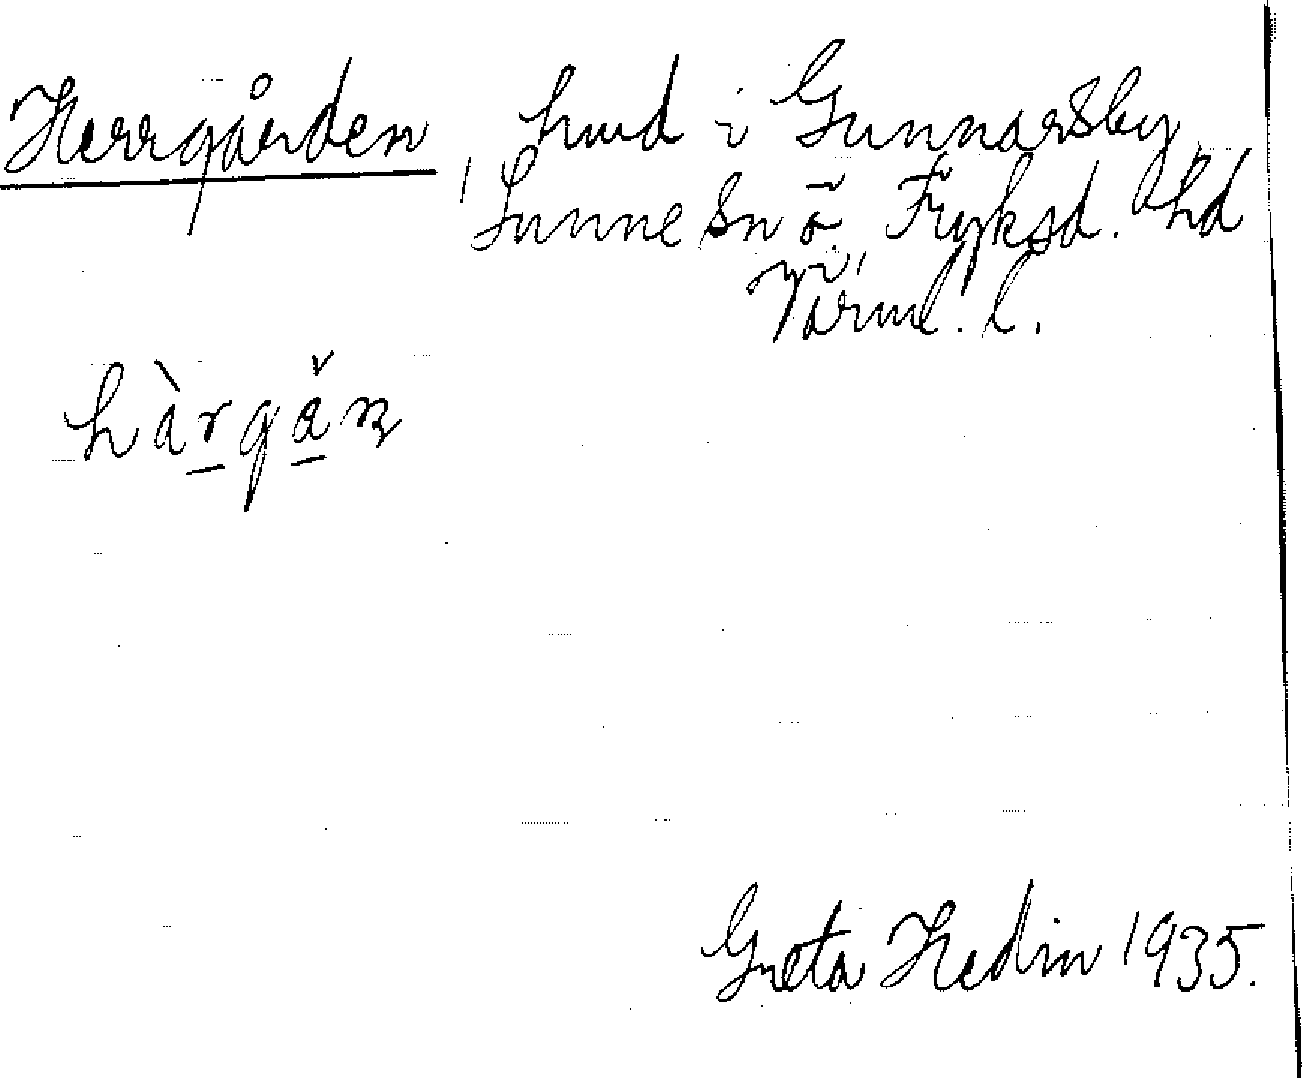 Herrgården, hmd i Gunnarsby,
Sunne sn o. Fryksd. hd
i
Värml. l.
hàrgån
Greta Hedin 1935.